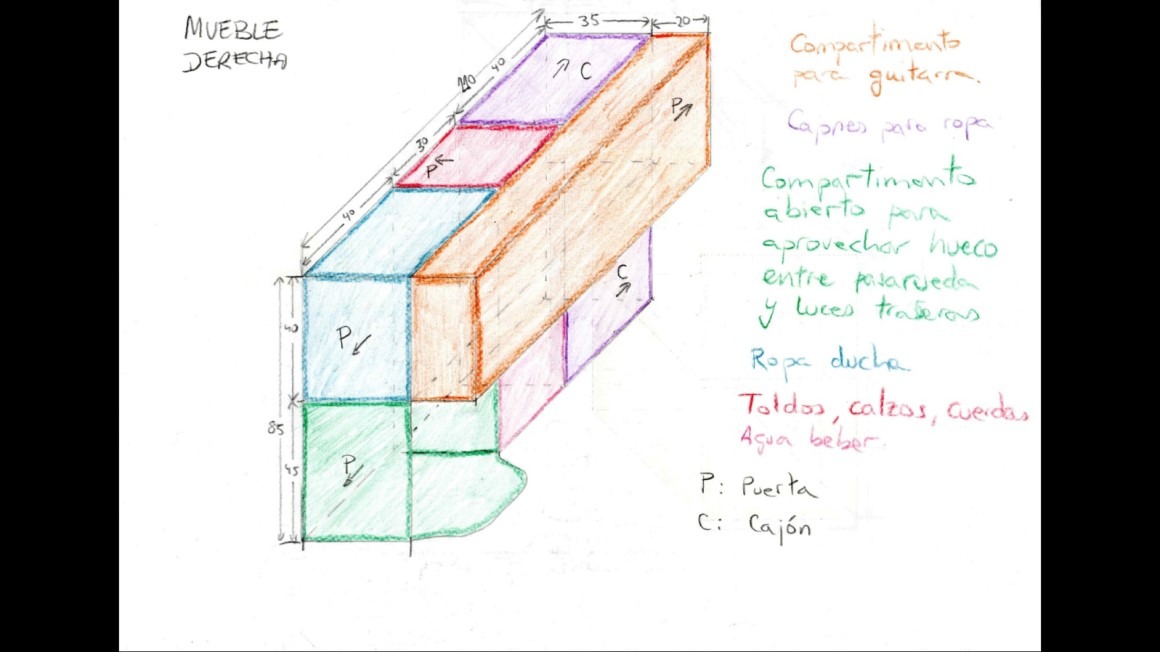 MUEBLE
DERECHA
35
20
40
110
30
40
C
P
P
C
P
P
40
85
45
Compartimento
para guitarra.
Cajones para ropa
Compartimento
abierto para
aprovechar hueco
entre pasarueda
y luces traseras
Ropa ducha
Toldos, calzos, cuerdas
Agua beber.
P: Puerta
C: Cajón